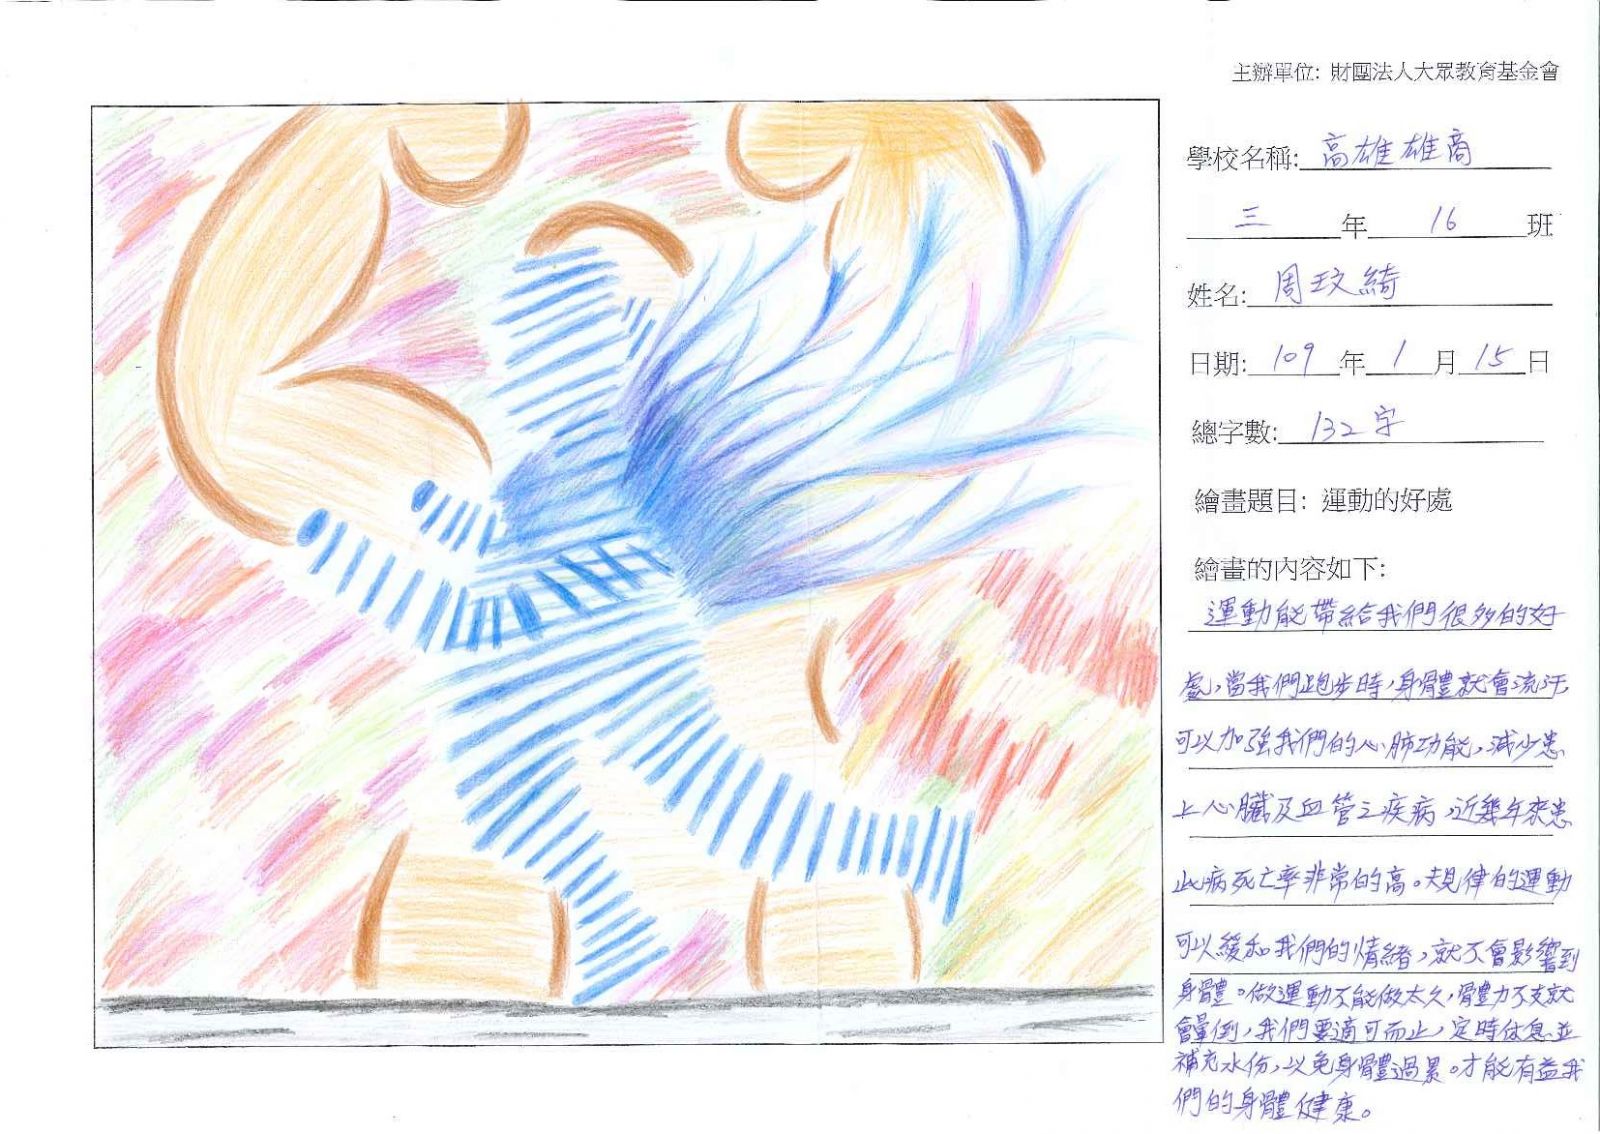 主辦單位: 財團法人大眾教育基金會
學校名稱: 高雄雄商
三 年 16 班
姓名: 周玟綺
日期: 109 年 1 月 15 日
總字數: 132字
繪畫題目: 運動的好處
繪畫的內容如下:
運動能帶給我們很多的好
處,當我們跑步時,身體就會流汗
可以加強我們的心肺功能,減少患
上心臟及血管之疾病,近幾年來患
此病死亡率非常的高。規律的運動
可以緩和我們的情緒,就不會影響到
身體。做運動不能做太久,體力不支就
會暈倒,我們要適可而止,定時休息並
補充水份,以免身體過累。才能有益我
們的身體健康。